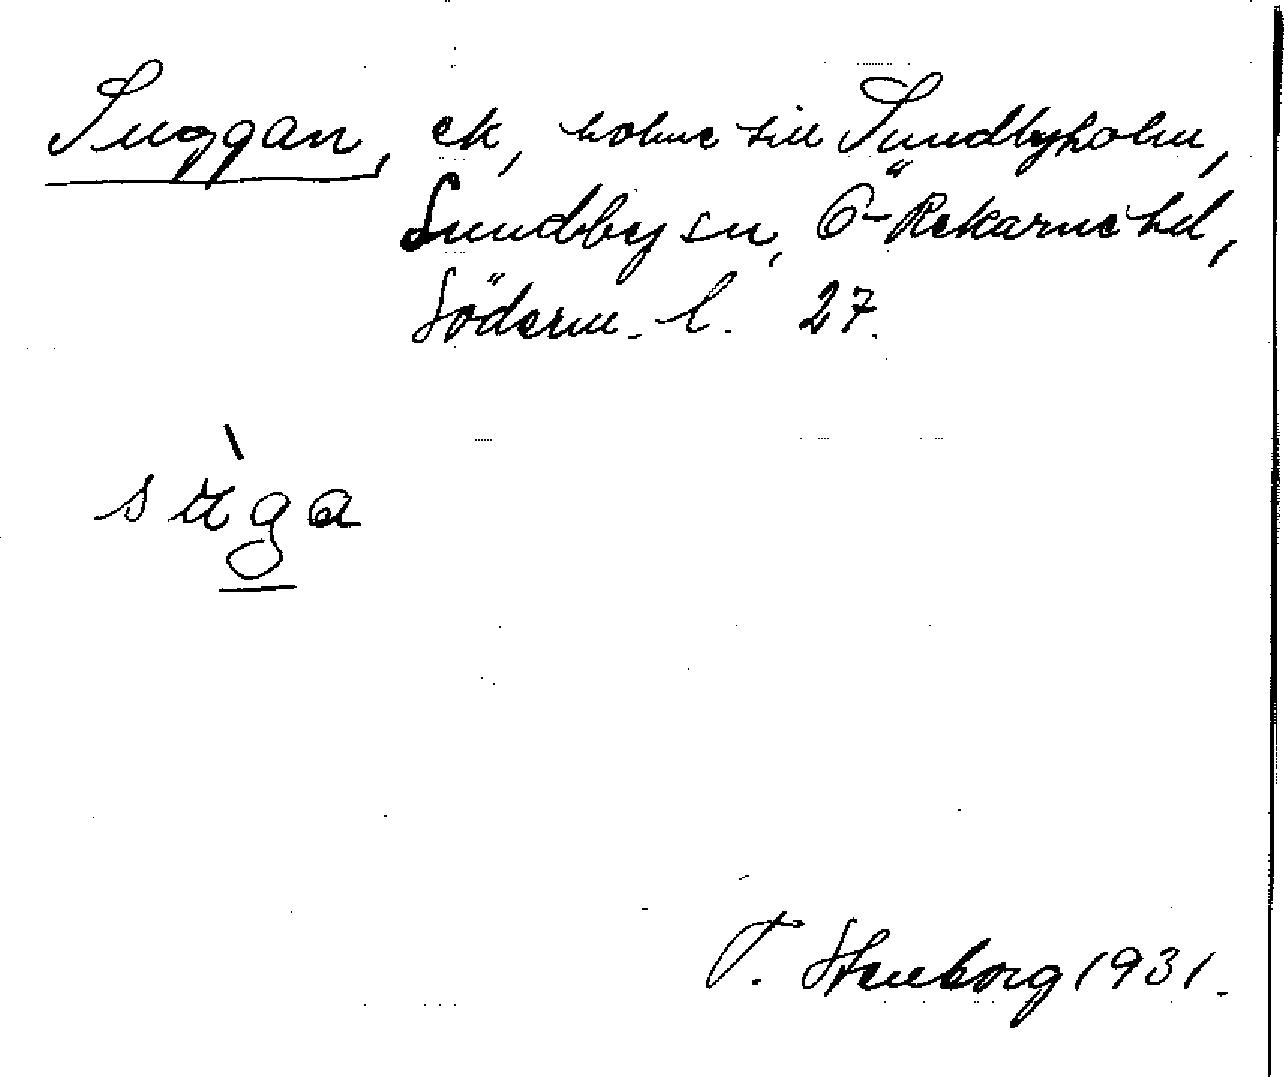 Suggan, ek, holme till Sundbyholm,
Sundby sn, Ö-Rekarne hd,
Söderm. l. 27.
sùga
T. Stenborg 1931.